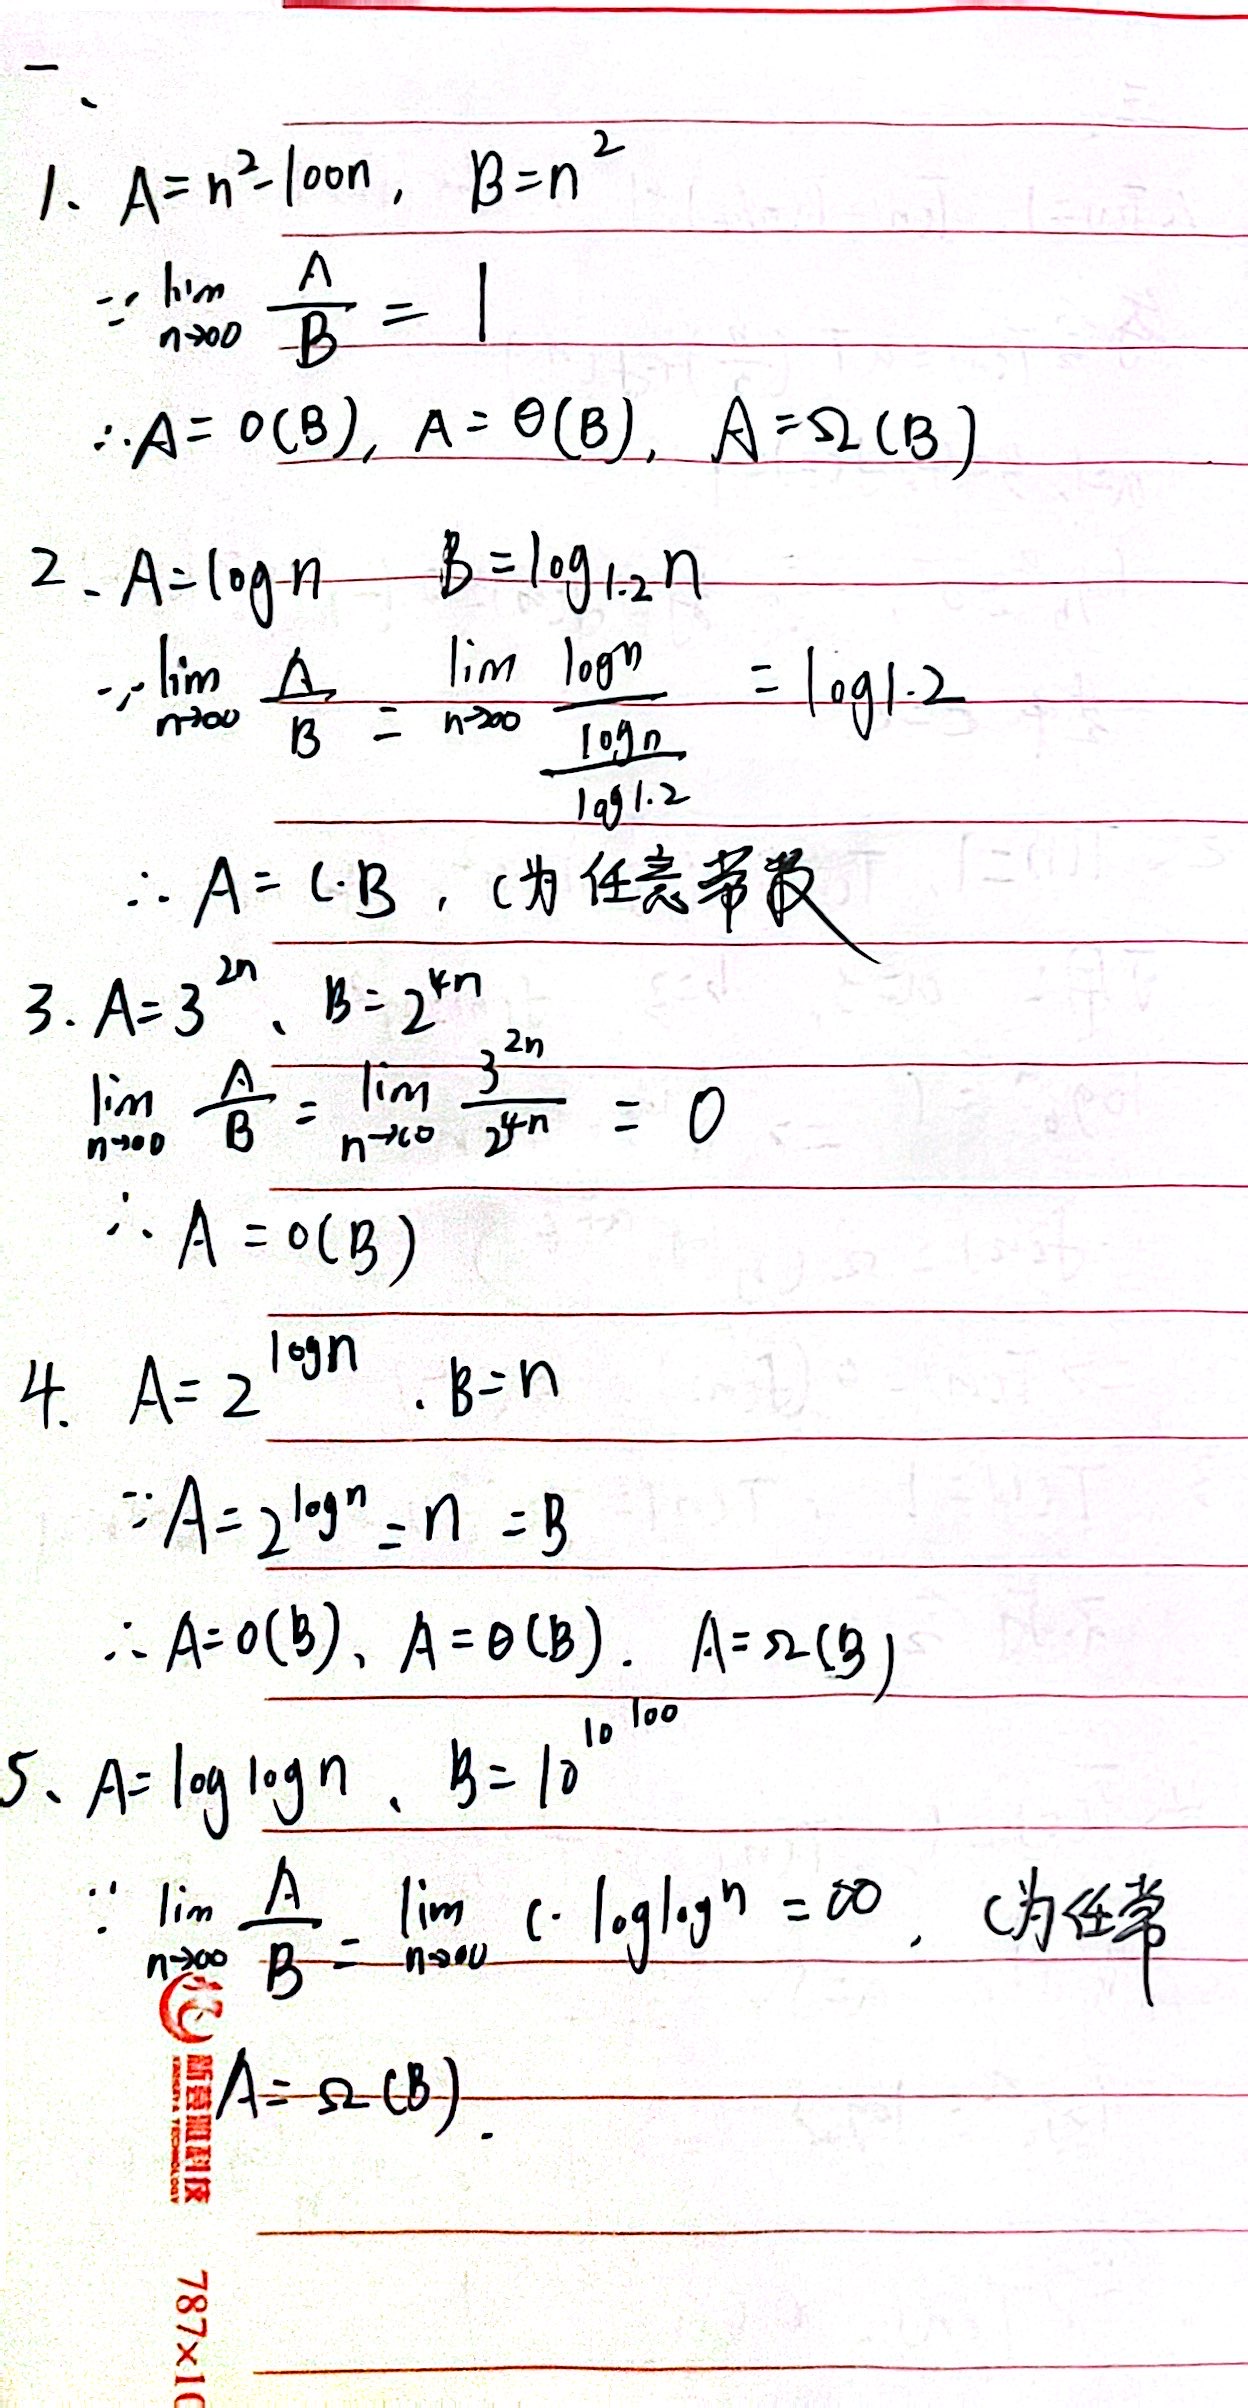 一、
1、A=n²-100n, B=n²
∵ lim n→∞ A/B = 1
∴A=O(B), A=θ(B), A=Ω(B)
2、A=logn B=log₁.₂n
∵ lim n→∞ A/B = lim n→∞ logn/(logn/log1.2) = log1.2
∴ A=C·B, C为任意常数
3. A=3²ⁿ、B=2⁴ⁿ
lim n→∞ A/B = lim n→∞ 3²ⁿ/2⁴ⁿ = 0
∴ A=O(B)
4. A=2^logn . B=n
∵A=2^logn=n=B
∴A=O(B)、A=θ(B). A=Ω(B)
5、A=loglogn、B=10^10^100
∵ lim n→∞ A/B = lim n→∞ C·loglogn=∞, C为任常
A=Ω(B).
787×10